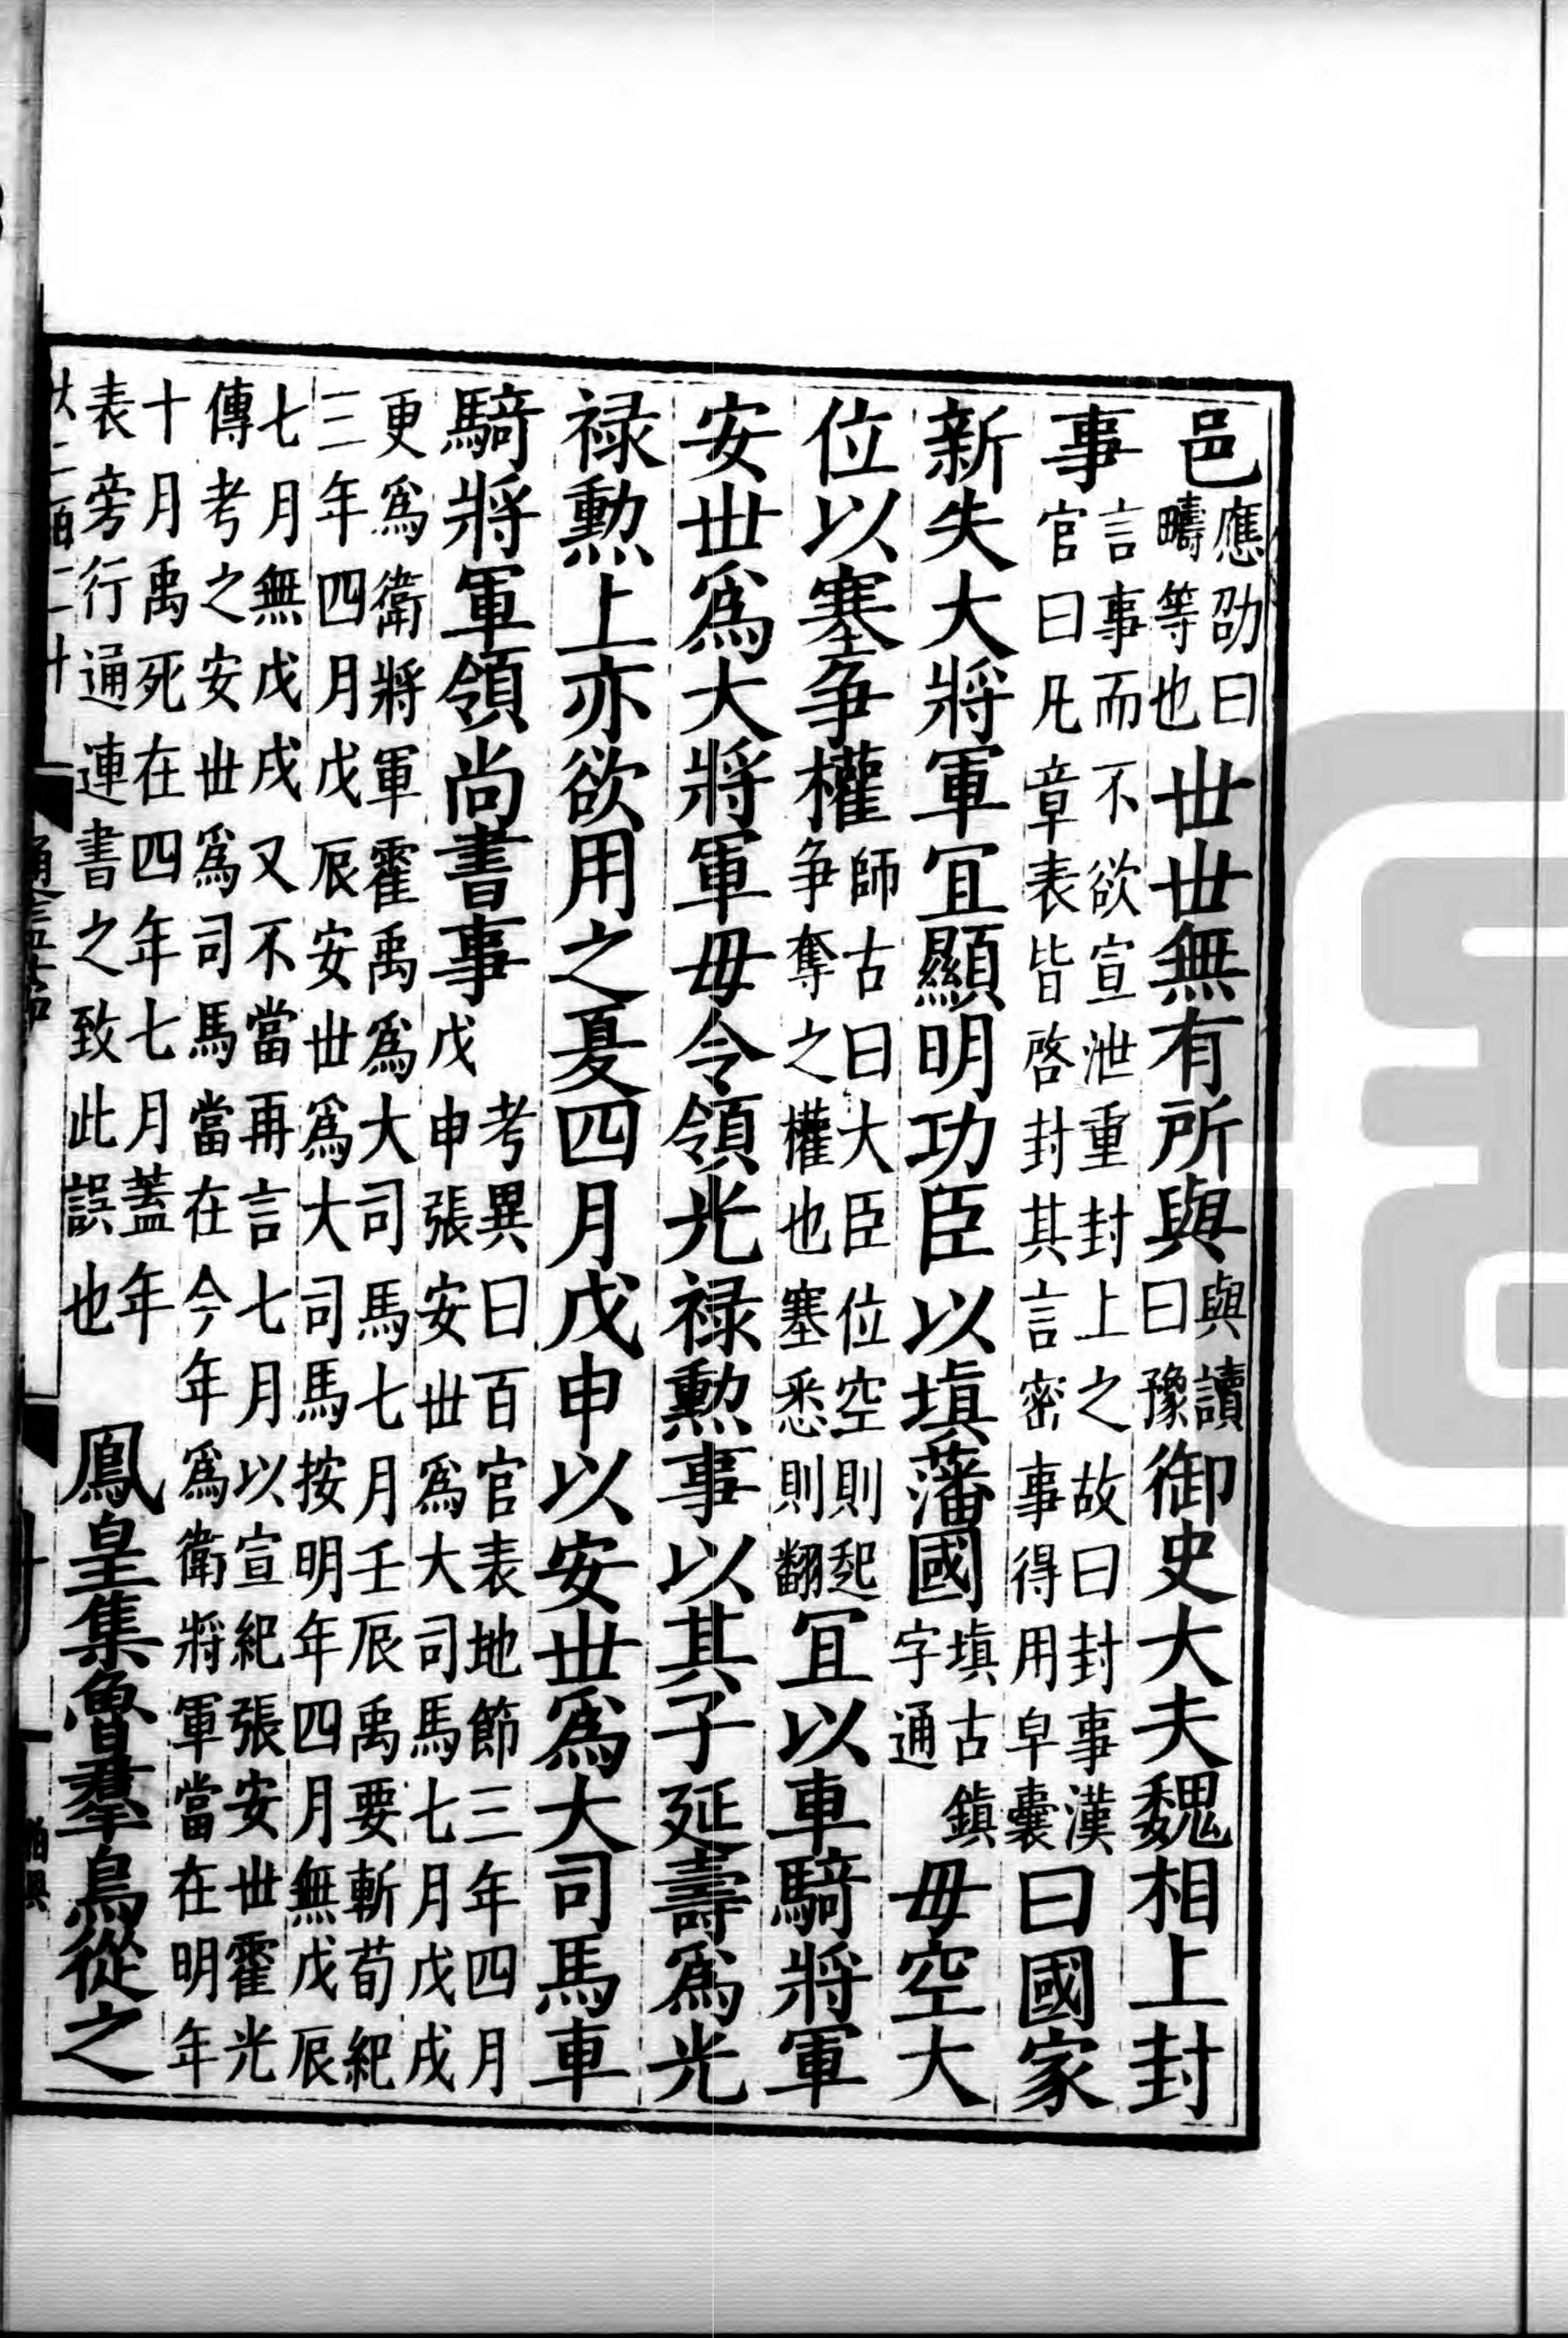 邑應劭曰疇等也丗丗無有所與與讀曰豫御史大夫魏相上封
事言事而不欲宣泄重封上之故曰封事漢官曰凡章表皆啓封其言密事得用皁囊曰國家
新失大將軍宜顯明功臣以塡藩國塡古鎮字通毋空大
位以塞争權師古曰大臣位空則起争奪之權也塞悉則翻宜以車騎將軍
安丗爲大將軍毋令領光禄勲事以其子延壽爲光
禄勲上亦欲用之夏四月戊申以安丗爲大司馬車
騎將軍領尚書事考異曰百官表地節三年四月戊申張安丗爲大司馬七月戊戌
更爲衛將軍霍禹爲大司馬七月壬辰禹要斬荀紀
三年四月戊辰安丗爲大司馬按明年四月無戊辰
七月無戊戌又不當再言七月以宣紀張安丗霍光
傳考之安丗爲司馬當在今年爲衛將軍當在明年
十月禹死在四年七月蓋年
表旁行通連書之致此誤也鳳皇集魯羣鳥從之